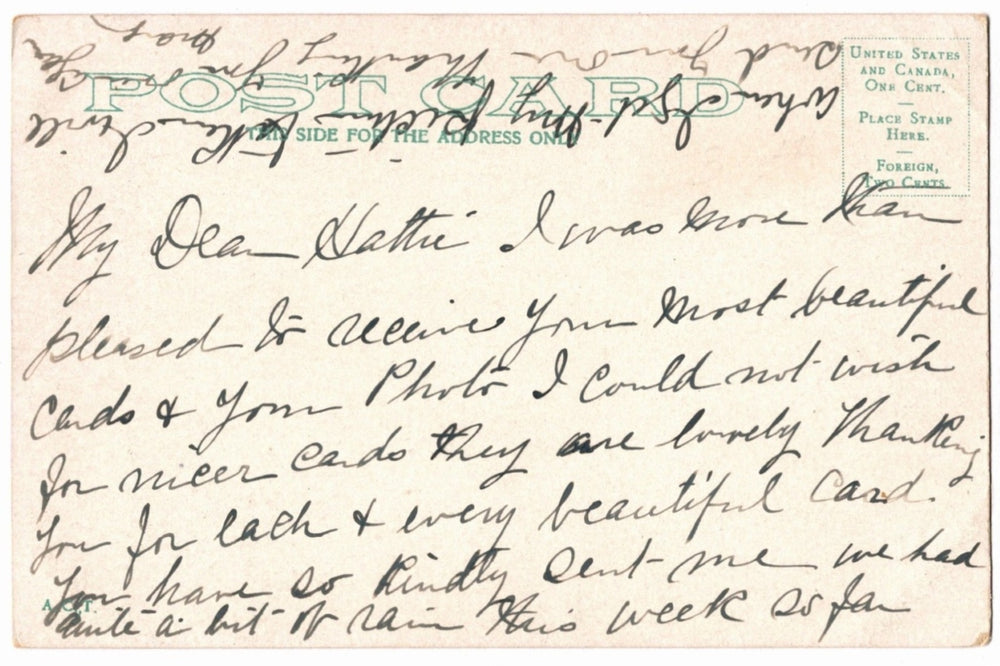 POST CARD
THIS SIDE FOR THE ADDRESS ONLY
UNITED STATES
AND CANADA,
ONE CENT.
—
PLACE STAMP
HERE.
—
FOREIGN,
TWO CENTS.
My Dear Hattie I was more than
pleased to receive your most beautiful
cards & your Photo I could not wish
for nicer cards they are lovely Thanking
you for each & every beautiful card.
you have so kindly sent me we had
quite a bit of rain this week so far
A.C.T.
When I get my picture taken I will
send you one Thanking you